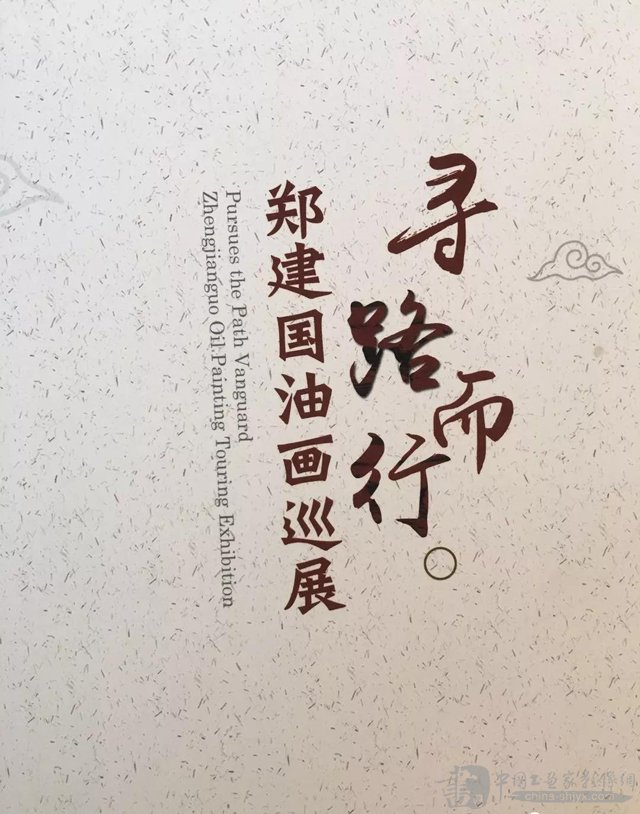 寻路而行。
郑建国油画巡展
Pursues the Path Vanguard
Zhengjianguo Oil Painting Touring Exhibition
中国书画家影像网
china-shjyx.com